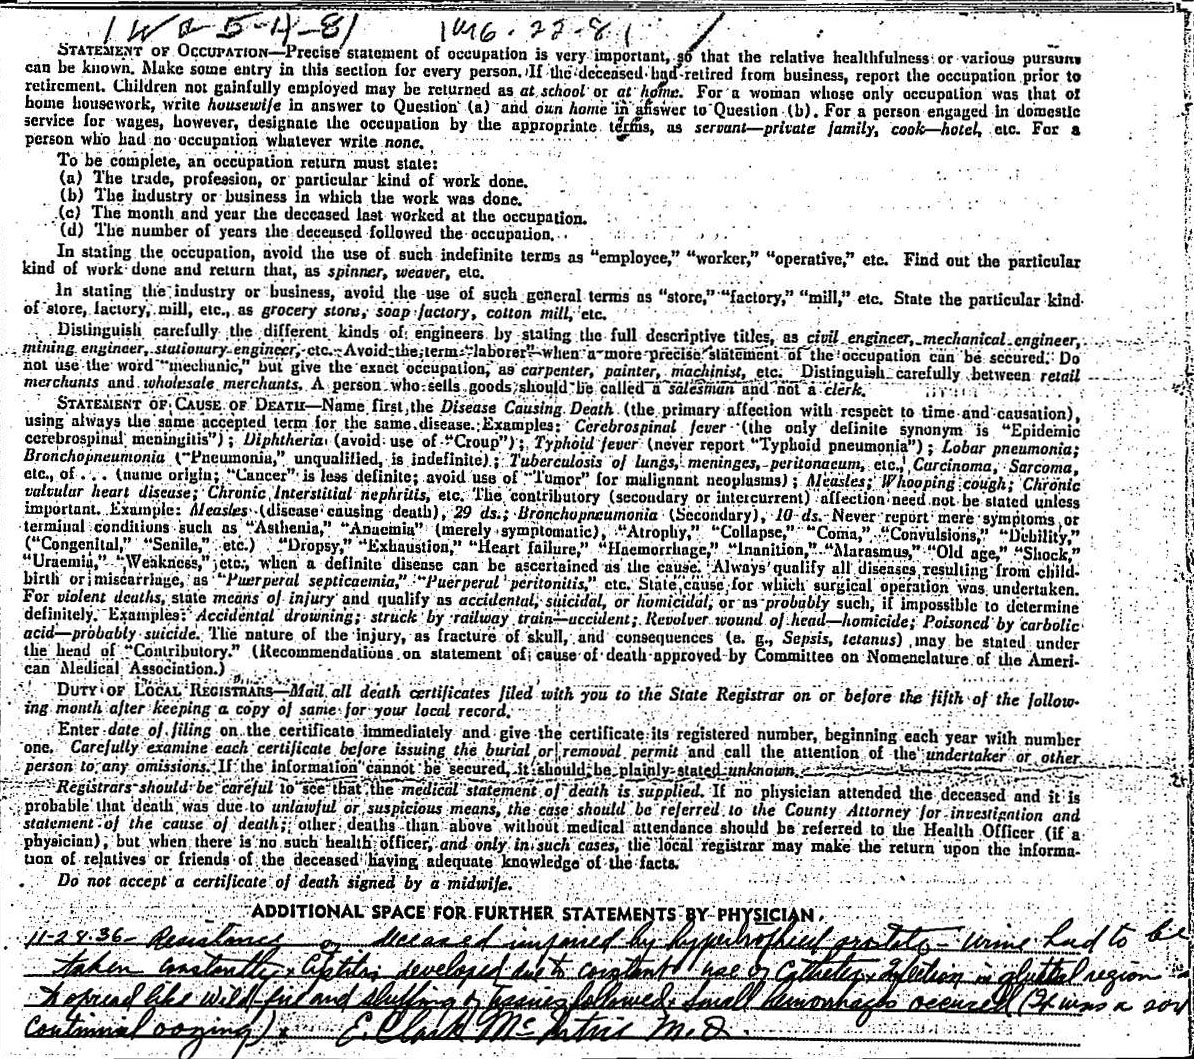 STATEMENT OF OCCUPATION—Precise statement of occupation is very important, so that the relative healthfulness or various pursuits
can be known. Make some entry in this section for every person. If the deceased had retired from business, report the occupation prior to
retirement. Children not gainfully employed may be returned as at school or at home. For a woman whose only occupation was that of
home housework, write housewife in answer to Question (a) and own home in answer to Question (b). For a person engaged in domestic
service for wages, however, designate the occupation by the appropriate terms, as servant—private family, cook—hotel, etc. For a
person who had no occupation whatever write none.
To be complete, an occupation return must state:
(a) The trade, profession, or particular kind of work done.
(b) The industry or business in which the work was done.
(c) The month and year the deceased last worked at the occupation.
(d) The number of years the deceased followed the occupation.
In stating the occupation, avoid the use of such indefinite terms as "employee," "worker," "operative," etc. Find out the particular
kind of work done and return that, as spinner, weaver, etc.
In stating the industry or business, avoid the use of such general terms as "store," "factory," "mill," etc. State the particular kind
of store, factory, mill, etc., as grocery store, soap factory, cotton mill, etc.
Distinguish carefully the different kinds of engineers by stating the full descriptive titles, as civil engineer, mechanical engineer,
mining engineer, stationary engineer, etc. Avoid the term "laborer" when a more precise statement of the occupation can be secured. Do
not use the word "mechanic," but give the exact occupation, as carpenter, painter, machinist, etc. Distinguish carefully between retail
merchants and wholesale merchants. A person who sells goods should be called a salesman and not a clerk.
STATEMENT OF CAUSE OF DEATH—Name first, the Disease Causing Death (the primary affection with respect to time and causation),
using always the same accepted term for the same disease. Examples: Cerebrospinal fever (the only definite synonym is "Epidemic
cerebrospinal meningitis"); Diphtheria (avoid use of "Croup"); Typhoid fever (never report "Typhoid pneumonia"); Lobar pneumonia;
Bronchopneumonia ("Pneumonia," unqualified, is indefinite); Tuberculosis of lungs, meninges, peritonaeum, etc., Carcinoma, Sarcoma,
etc., of ... (name origin; "Cancer" is less definite; avoid use of "Tumor" for malignant neoplasms); Measles; Whooping cough; Chronic
valvular heart disease; Chronic Interstitial nephritis, etc. The contributory (secondary or intercurrent) affection need not be stated unless
important. Example: Measles (disease causing death), 29 ds.; Bronchopneumonia (Secondary), 10 ds. Never report mere symptoms or
terminal conditions such as "Asthenia," "Anaemia" (merely symptomatic), "Atrophy," "Collapse," "Coma," "Convulsions," "Debility,"
("Congenital," "Senile," etc.) "Dropsy," "Exhaustion," "Heart failure," "Haemorrhage," "Inanition," "Marasmus," "Old age," "Shock,"
"Uraemia," "Weakness," etc., when a definite disease can be ascertained as the cause. Always qualify all diseases resulting from child-
birth or miscarriage, as "Puerperal septicaemia," "Puerperal peritonitis," etc. State cause for which surgical operation was undertaken.
For violent deaths, state means of injury and qualify as accidental, suicidal, or homicidal, or as probably such, if impossible to determine
definitely. Examples: Accidental drowning; struck by railway train—accident; Revolver wound of head—homicide; Poisoned by carbolic
acid—probably suicide. The nature of the injury, as fracture of skull, and consequences (e. g., Sepsis, tetanus) may be stated under
the head of "Contributory." (Recommendations on statement of cause of death approved by Committee on Nomenclature of the Ameri-
can Medical Association.)
DUTY OF LOCAL REGISTRARS—Mail all death certificates filed with you to the State Registrar on or before the fifth of the follow-
ing month after keeping a copy of same for your local record.
Enter date of filing on the certificate immediately and give the certificate its registered number, beginning each year with number
one. Carefully examine each certificate before issuing the burial or removal permit and call the attention of the undertaker or other
person to any omissions. If the information cannot be secured, it should be plainly stated unknown.
Registrars should be careful to see that the medical statement of death is supplied. If no physician attended the deceased and it is
probable that death was due to unlawful or suspicious means, the case should be referred to the County Attorney for investigation and
statement of the cause of death; other deaths than above without medical attendance should be referred to the Health Officer (if a
physician), but when there is no such health officer, and only in such cases, the local registrar may make the return upon the informa-
tion of relatives or friends of the deceased having adequate knowledge of the facts.
Do not accept a certificate of death signed by a midwife.
ADDITIONAL SPACE FOR FURTHER STATEMENTS BY PHYSICIAN.
11-28-36- Resistance of deceased impaired by hypertrophied prostate - Urine had to be
taken constantly. Cystitis developed due to constant use of Catheter. Infection in gluteal region
spread like wild-fire and sluffing of tissues followed. Small hemorrhages occured (It was a
continual oozing). E. Clark M.D.